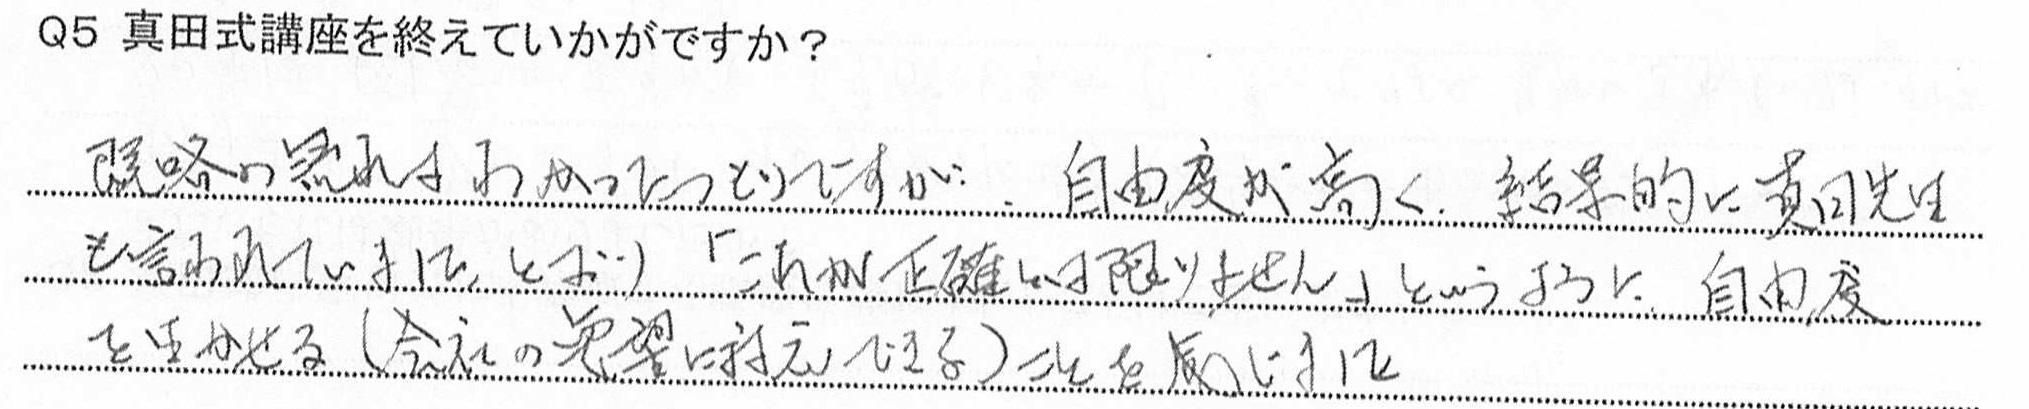 Q5 真田式講座を終えていかがですか？
既略の流れはわかったつもりですが、自由度が高く、結果的に真田先生
も言われていました、とおり「これが正確とは限りません」というように、自由度
を生かせる（会社の要望に対応できる）ことを感じました